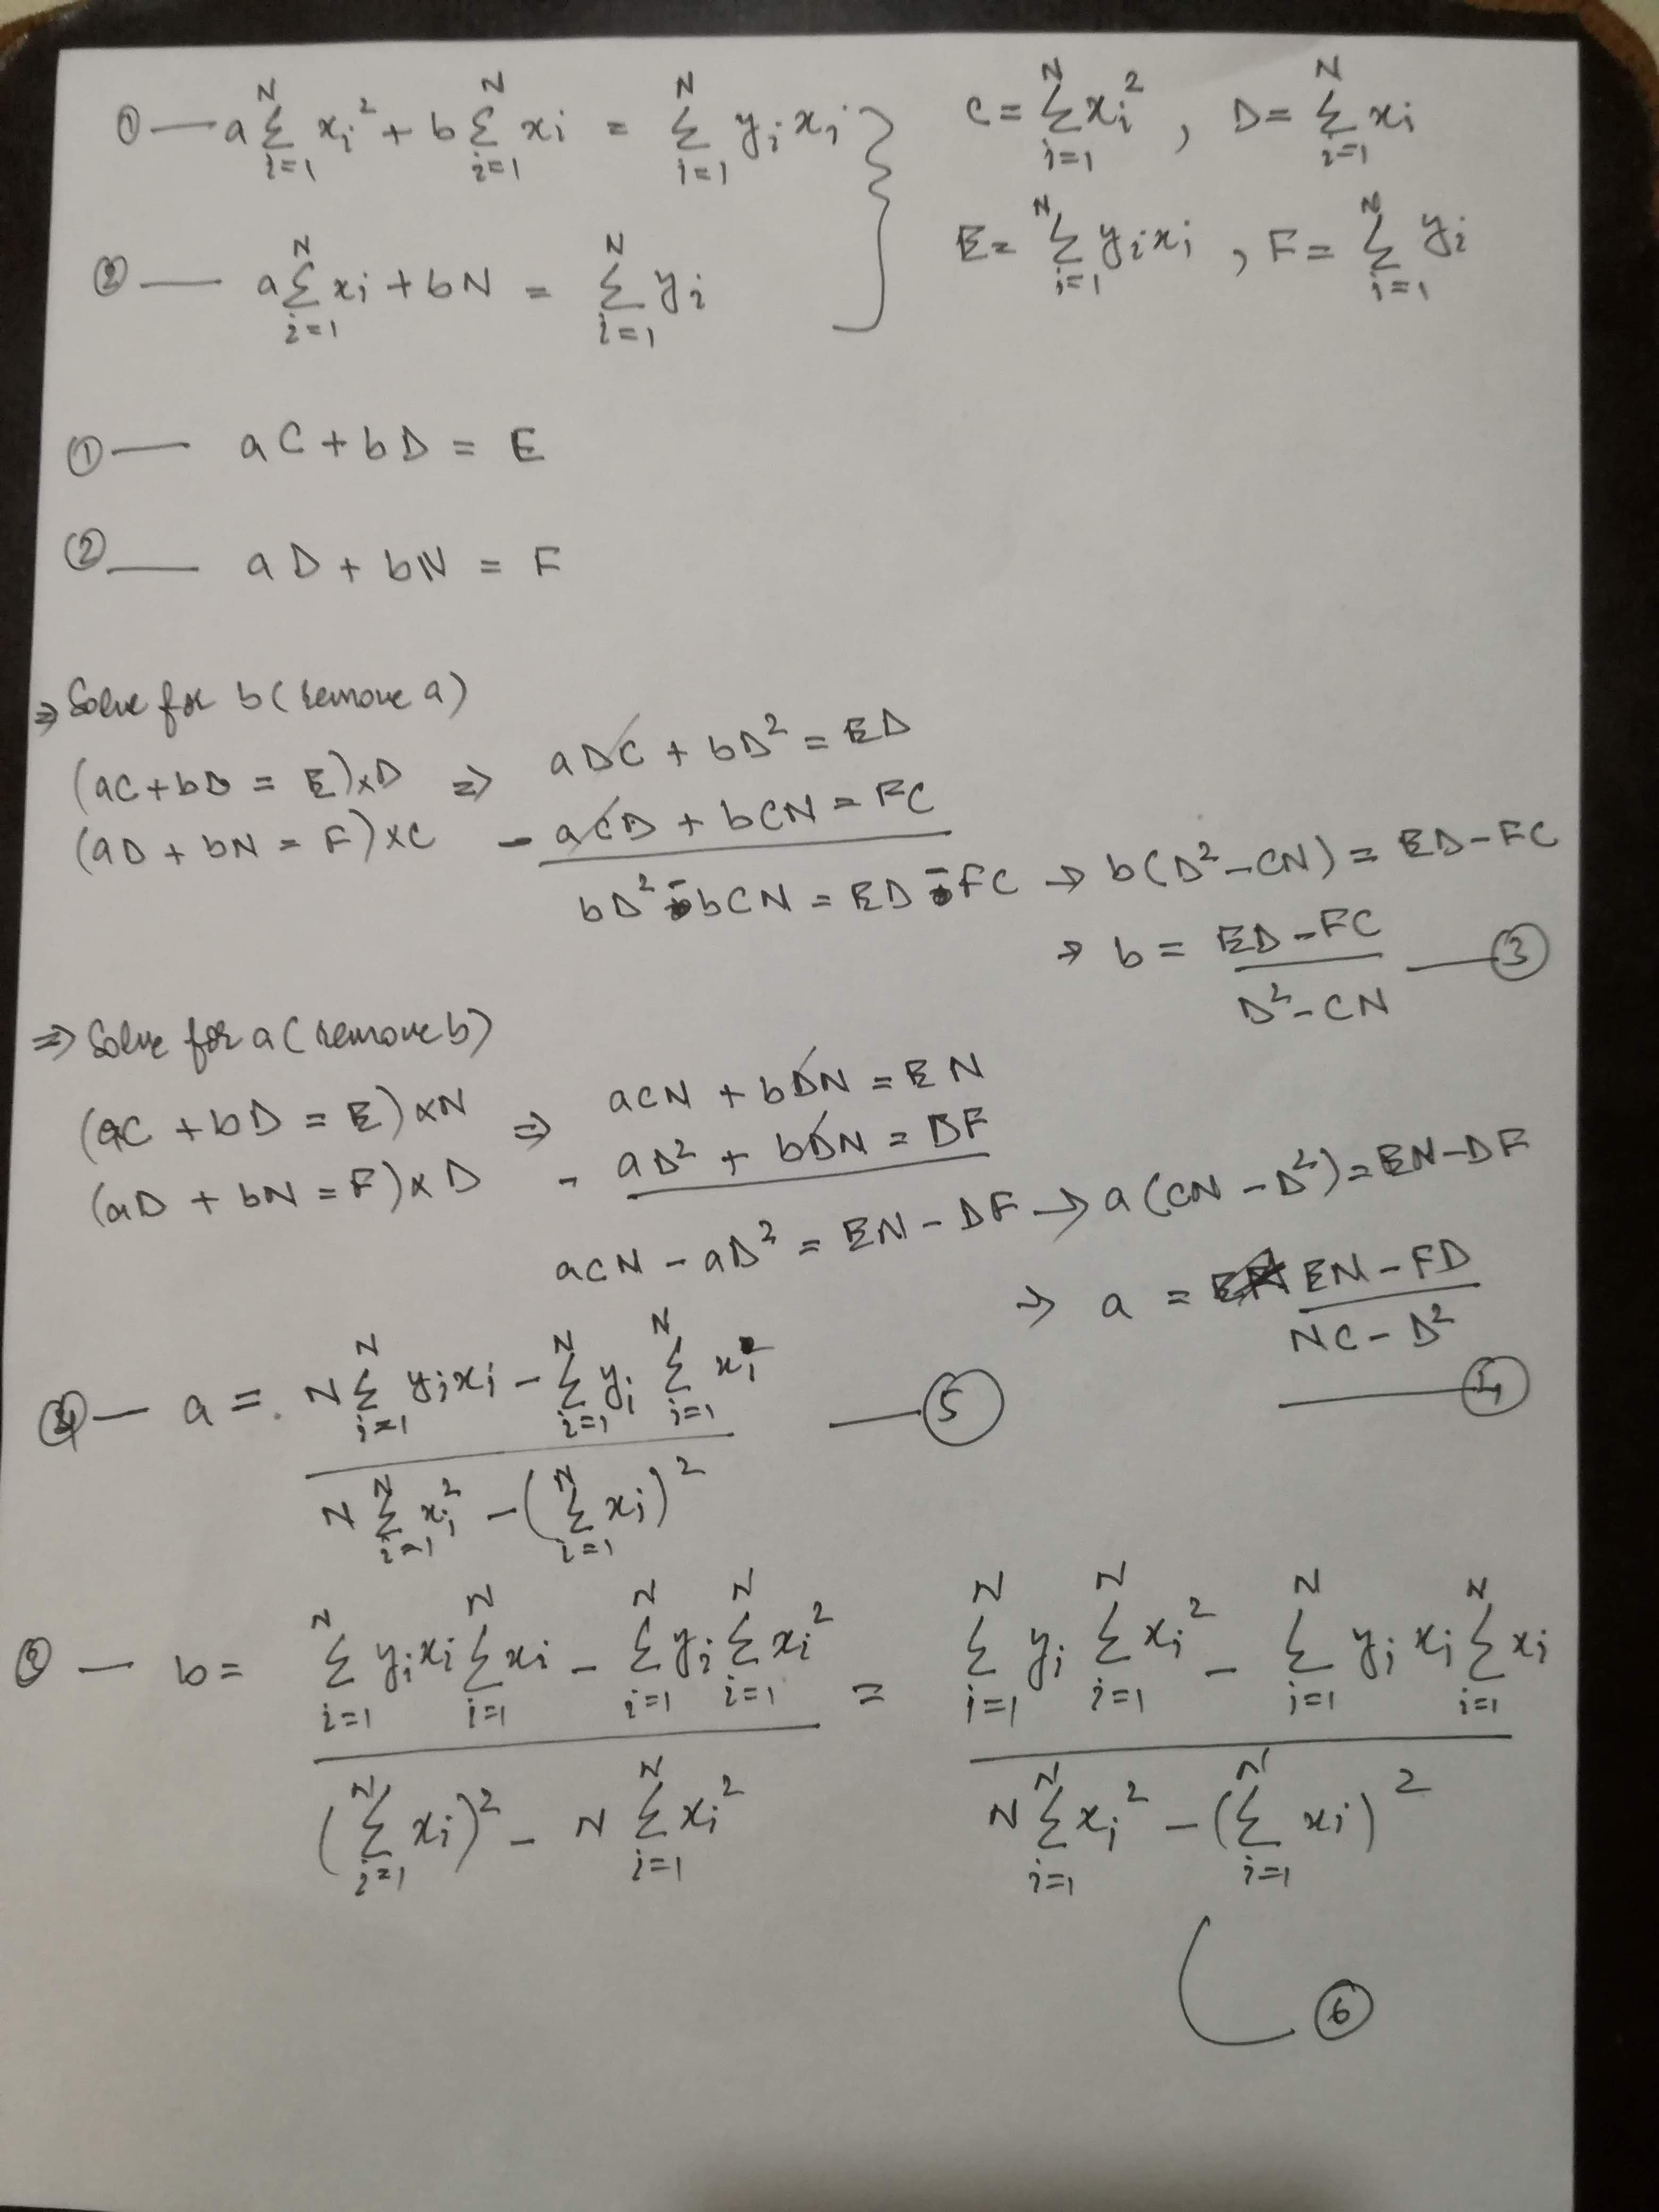 ① — a Σ_{i=1}^{N} x_i² + b Σ_{i=1}^{N} x_i = Σ_{i=1}^{N} y_i x_i } C = Σ_{i=1}^{N} x_i² , D = Σ_{i=1}^{N} x_i
② — a Σ_{i=1}^{N} x_i + bN = Σ_{i=1}^{N} y_i } E = Σ_{i=1}^{N} y_i x_i , F = Σ_{i=1}^{N} y_i
① — aC + bD = E
② — aD + bN = F
⇒ Solve for b (remove a)
(aC + bD = E) × D ⇒ aDC + bD² = ED
(aD + bN = F) × C - aCD + bCN = FC
bD² - bCN = ED - FC → b(D² - CN) = ED - FC
→ b = (ED - FC) / (D² - CN) — ③
⇒ Solve for a (remove b)
(aC + bD = E) × N ⇒ aCN + bDN = EN
(aD + bN = F) × D - aD² + bDN = DF
aCN - aD² = EN - DF → a(CN - D²) = EN - DF
→ a = (EN - FD) / (NC - D²) — ④
④ — a = (N Σ_{i=1}^{N} y_i x_i - Σ_{i=1}^{N} y_i Σ_{i=1}^{N} x_i) / (N Σ_{i=1}^{N} x_i² - (Σ_{i=1}^{N} x_i)²) — ⑤
③ — b = (Σ_{i=1}^{N} y_i x_i Σ_{i=1}^{N} x_i - Σ_{i=1}^{N} y_i Σ_{i=1}^{N} x_i²) / ((Σ_{i=1}^{N} x_i)² - N Σ_{i=1}^{N} x_i²) = (Σ_{i=1}^{N} y_i Σ_{i=1}^{N} x_i² - Σ_{i=1}^{N} y_i x_i Σ_{i=1}^{N} x_i) / (N Σ_{i=1}^{N} x_i² - (Σ_{i=1}^{N} x_i)²)
⑥